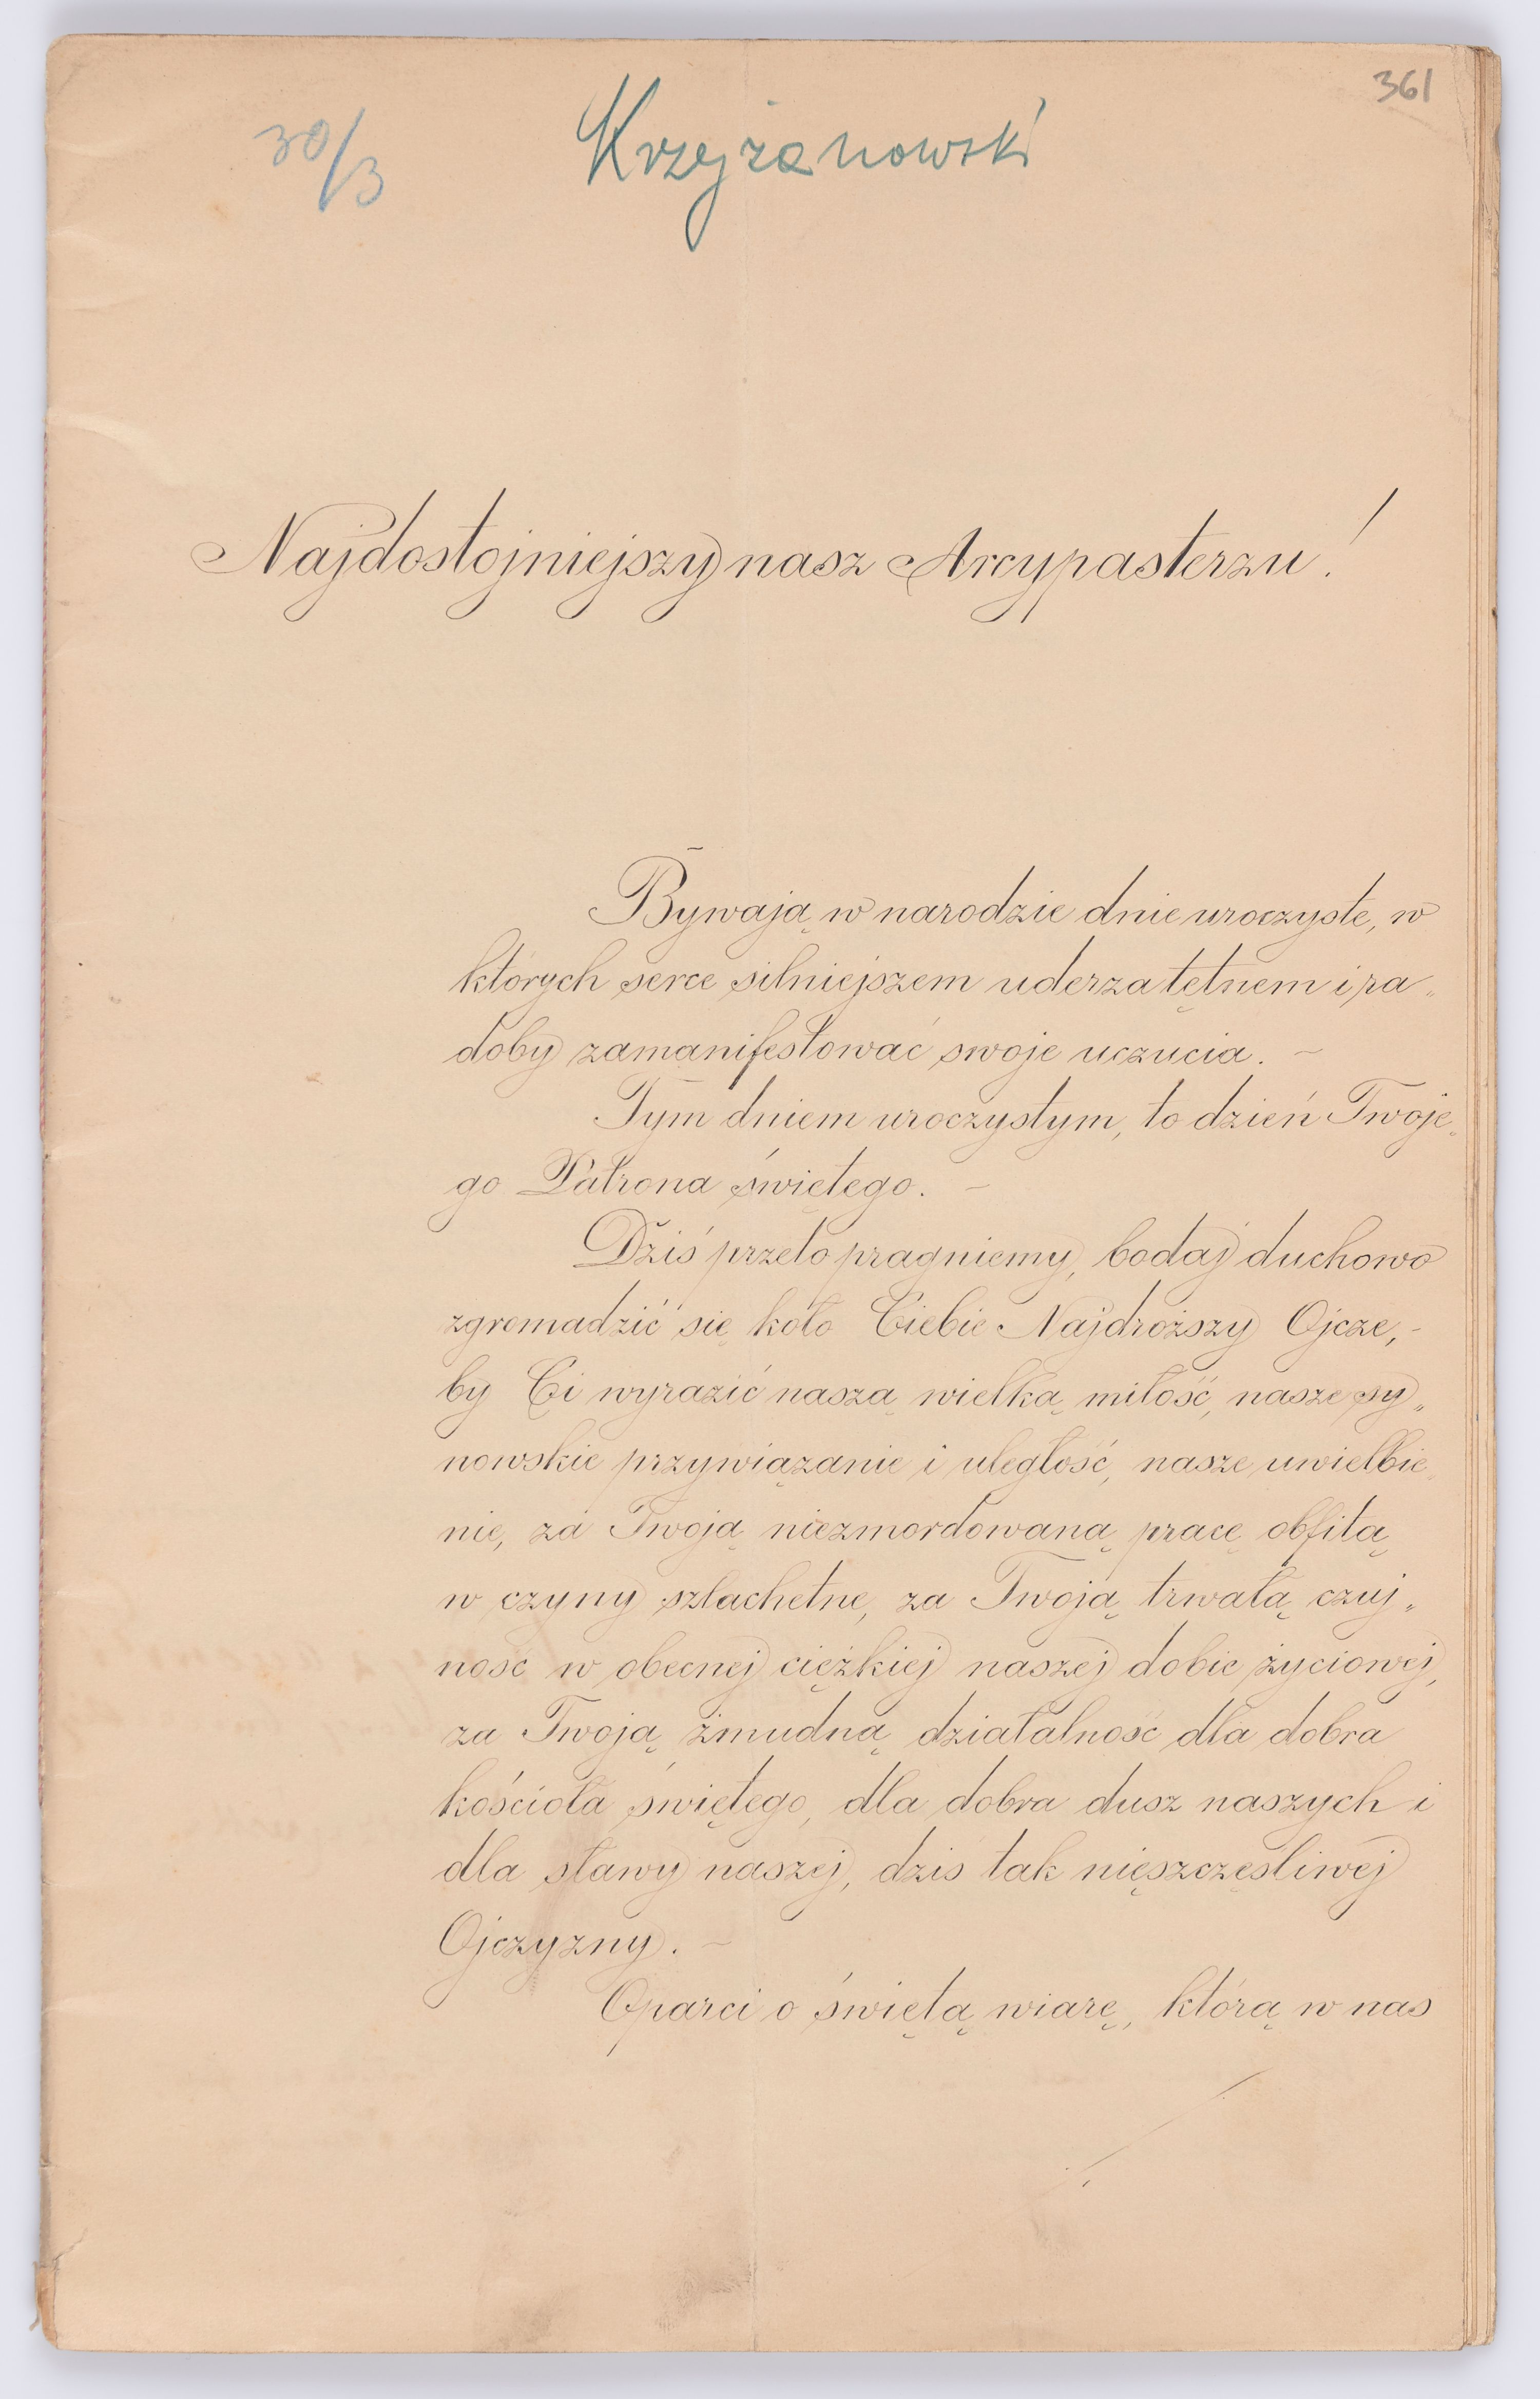 361
30/3
Krzyżanowski
Najdostojniejszy nasz Arcypasterzu!
Bywają w narodzie dnie uroczyste, w
których serce silniejszem uderza tętnem i ra„
doby zamanifestować swoje uczucia. –
Tym dniem uroczystym, to dzień Twoje„
go Patrona świętego. –
Dziś przeto pragniemy, bodaj duchowo
zgromadzić się koło Ciebie Najdroższy Ojcze, –
by Ci wyrazić naszą wielką miłość, nasze sy„
nowskie przywiązanie i uległość, nasze uwielbie„
nie, za Twoją niezmordowaną pracę obfitą
w czyny szlachetne, za Twoją trwałą czuj„
ność w obecnej ciężkiej naszej dobie życiowej,
za Twoją żmudną działalność dla dobra
kościoła świętego, dla dobra dusz naszych i
dla sławy naszej, dziś tak nięszczęsliwej
Ojczyzny. –
Oparci o świętą wiarę, którą w nas